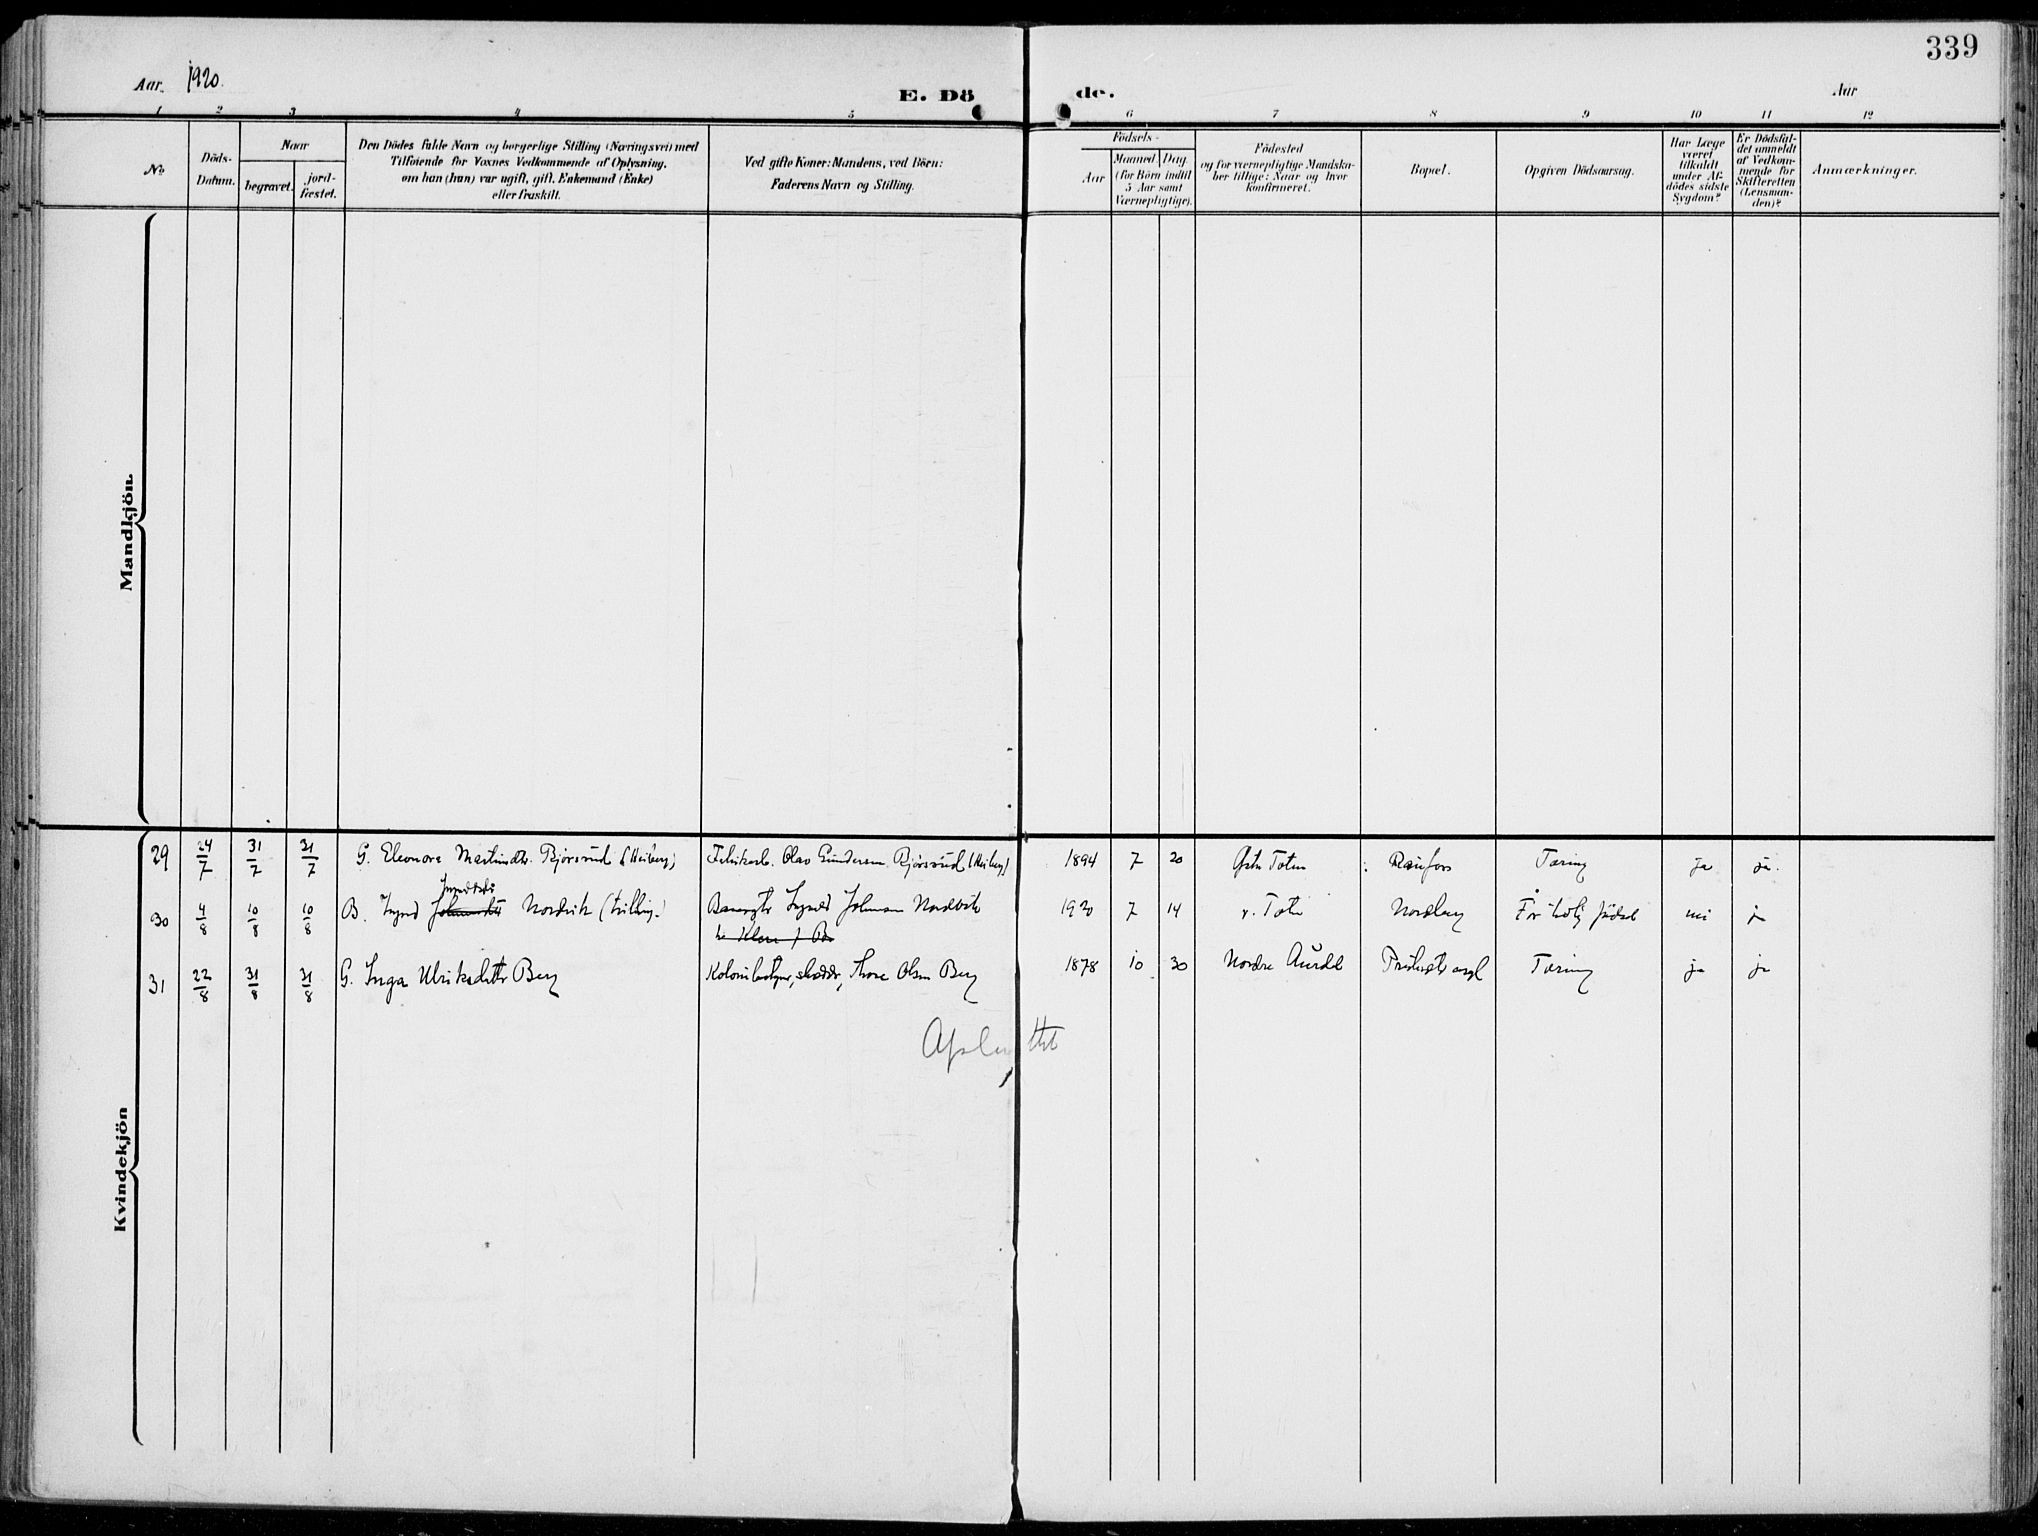 339
Aar. 1920.
E. Dö de.
Aar
1 2 3 4 5 6 7 8 9 10 11 12
No.
Döds-
Datum.
Naar
begravet.
jord-
fæstet.
Den Dödes fulde Navn og borgerlige Stilling (Næringsvei) med
Tilföiende for Voxnes Vedkommende af Oplysning,
om han (hun) var ugift, gift, Enkemand (Enke)
eller fraskilt.
Ved gifte Koner: Mandens, ved Börn:
Faderens Navn og Stilling.
Födsels-
Aar
Maaned. Dag.
(for Börn indtil
5 Aar samt
Værnepligtige).
Födested
og for værnepligtige Mandska-
ber tillige: Naar og hvor
konfirmeret.
Bopæl.
Opgiven Dödsaarsag.
Har Læge
været
tilkaldt
under Af-
dödes sidste
Sygdom?
Er Dödsfal-
det anmeldt
af Vedkom-
mende for
Skifteretten
(Lensman-
den)?
Anmærkninger.
Mandkjön.
Kvindekjön
29 24/7 31/7 31/7 G. Eleonora Martinsdtr. Bjørsrud Olav Gundersen Bjørsrud 1894 7 20 Østre Toten Raufoss Tæring ja ja.
30 4/8 10/8 10/8 B. Nordvik (trilling) 1920 7 14 v. Toten Nordberg For tidlig fødsel nei ja
31 22/8 31/8 31/8 G. Inga Ulriksdtr Berg Thore Olsen Berg 1878 10 30 Nordre Aurdal Tæring ja ja
Afsluttet